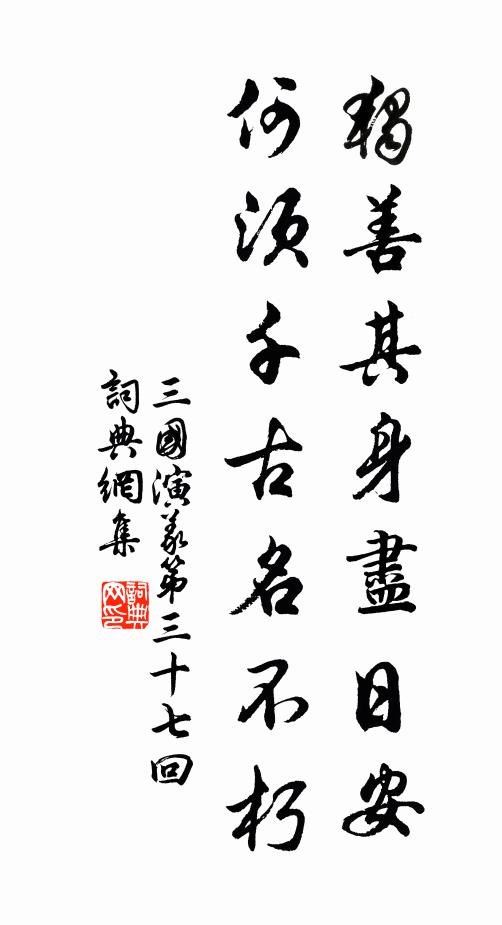 獨善其身盡日安
何須千古名不朽
三國演義第三十七回
詞典網集
詞典
网印